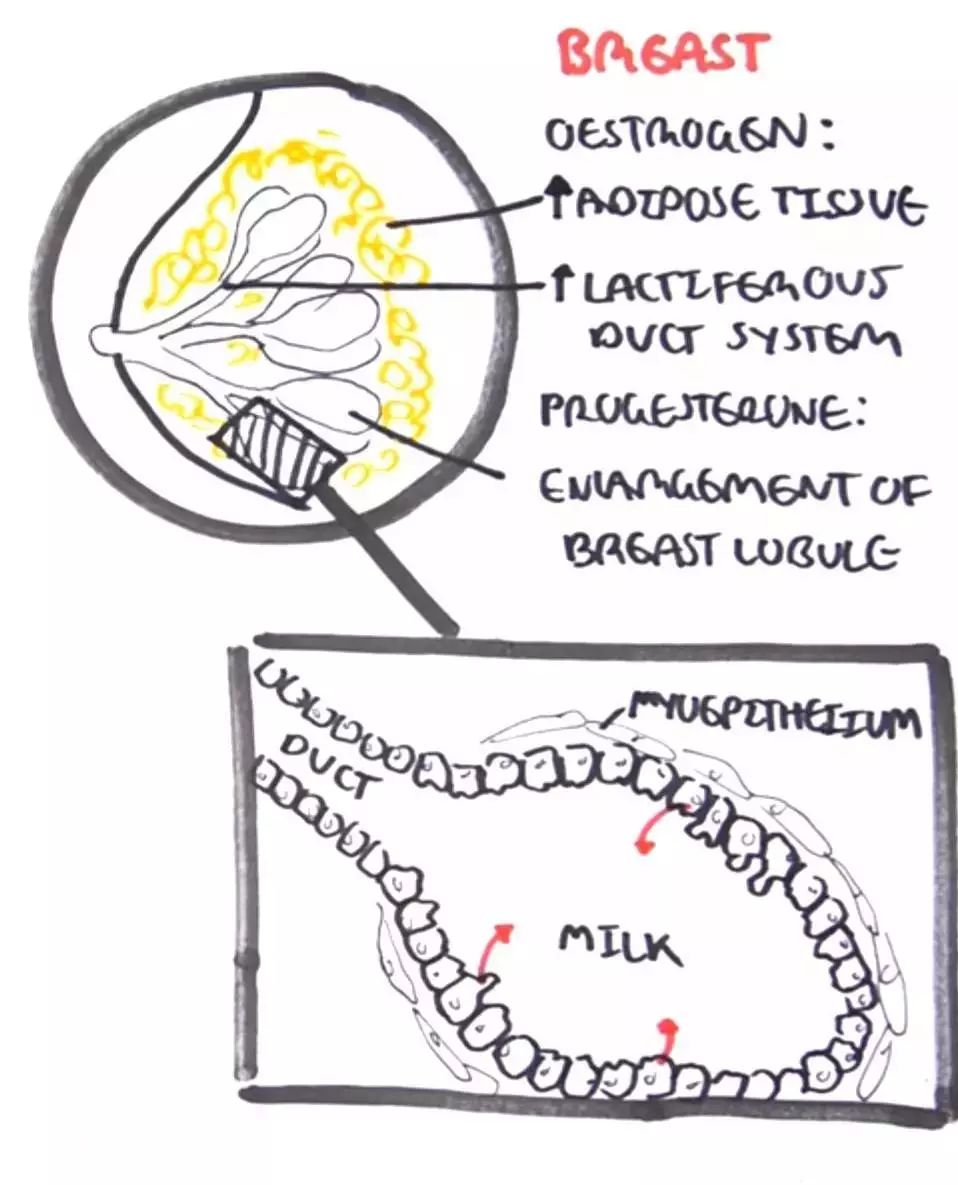 BREAST
OESTROGEN:
↑ADIPOSE TISSUE
↑LACTIFEROUS
DUCT SYSTEM
PROGESTERONE:
ENLARGEMENT OF
BREAST LOBULE
MYOEPITHELIUM
DUCT
MILK